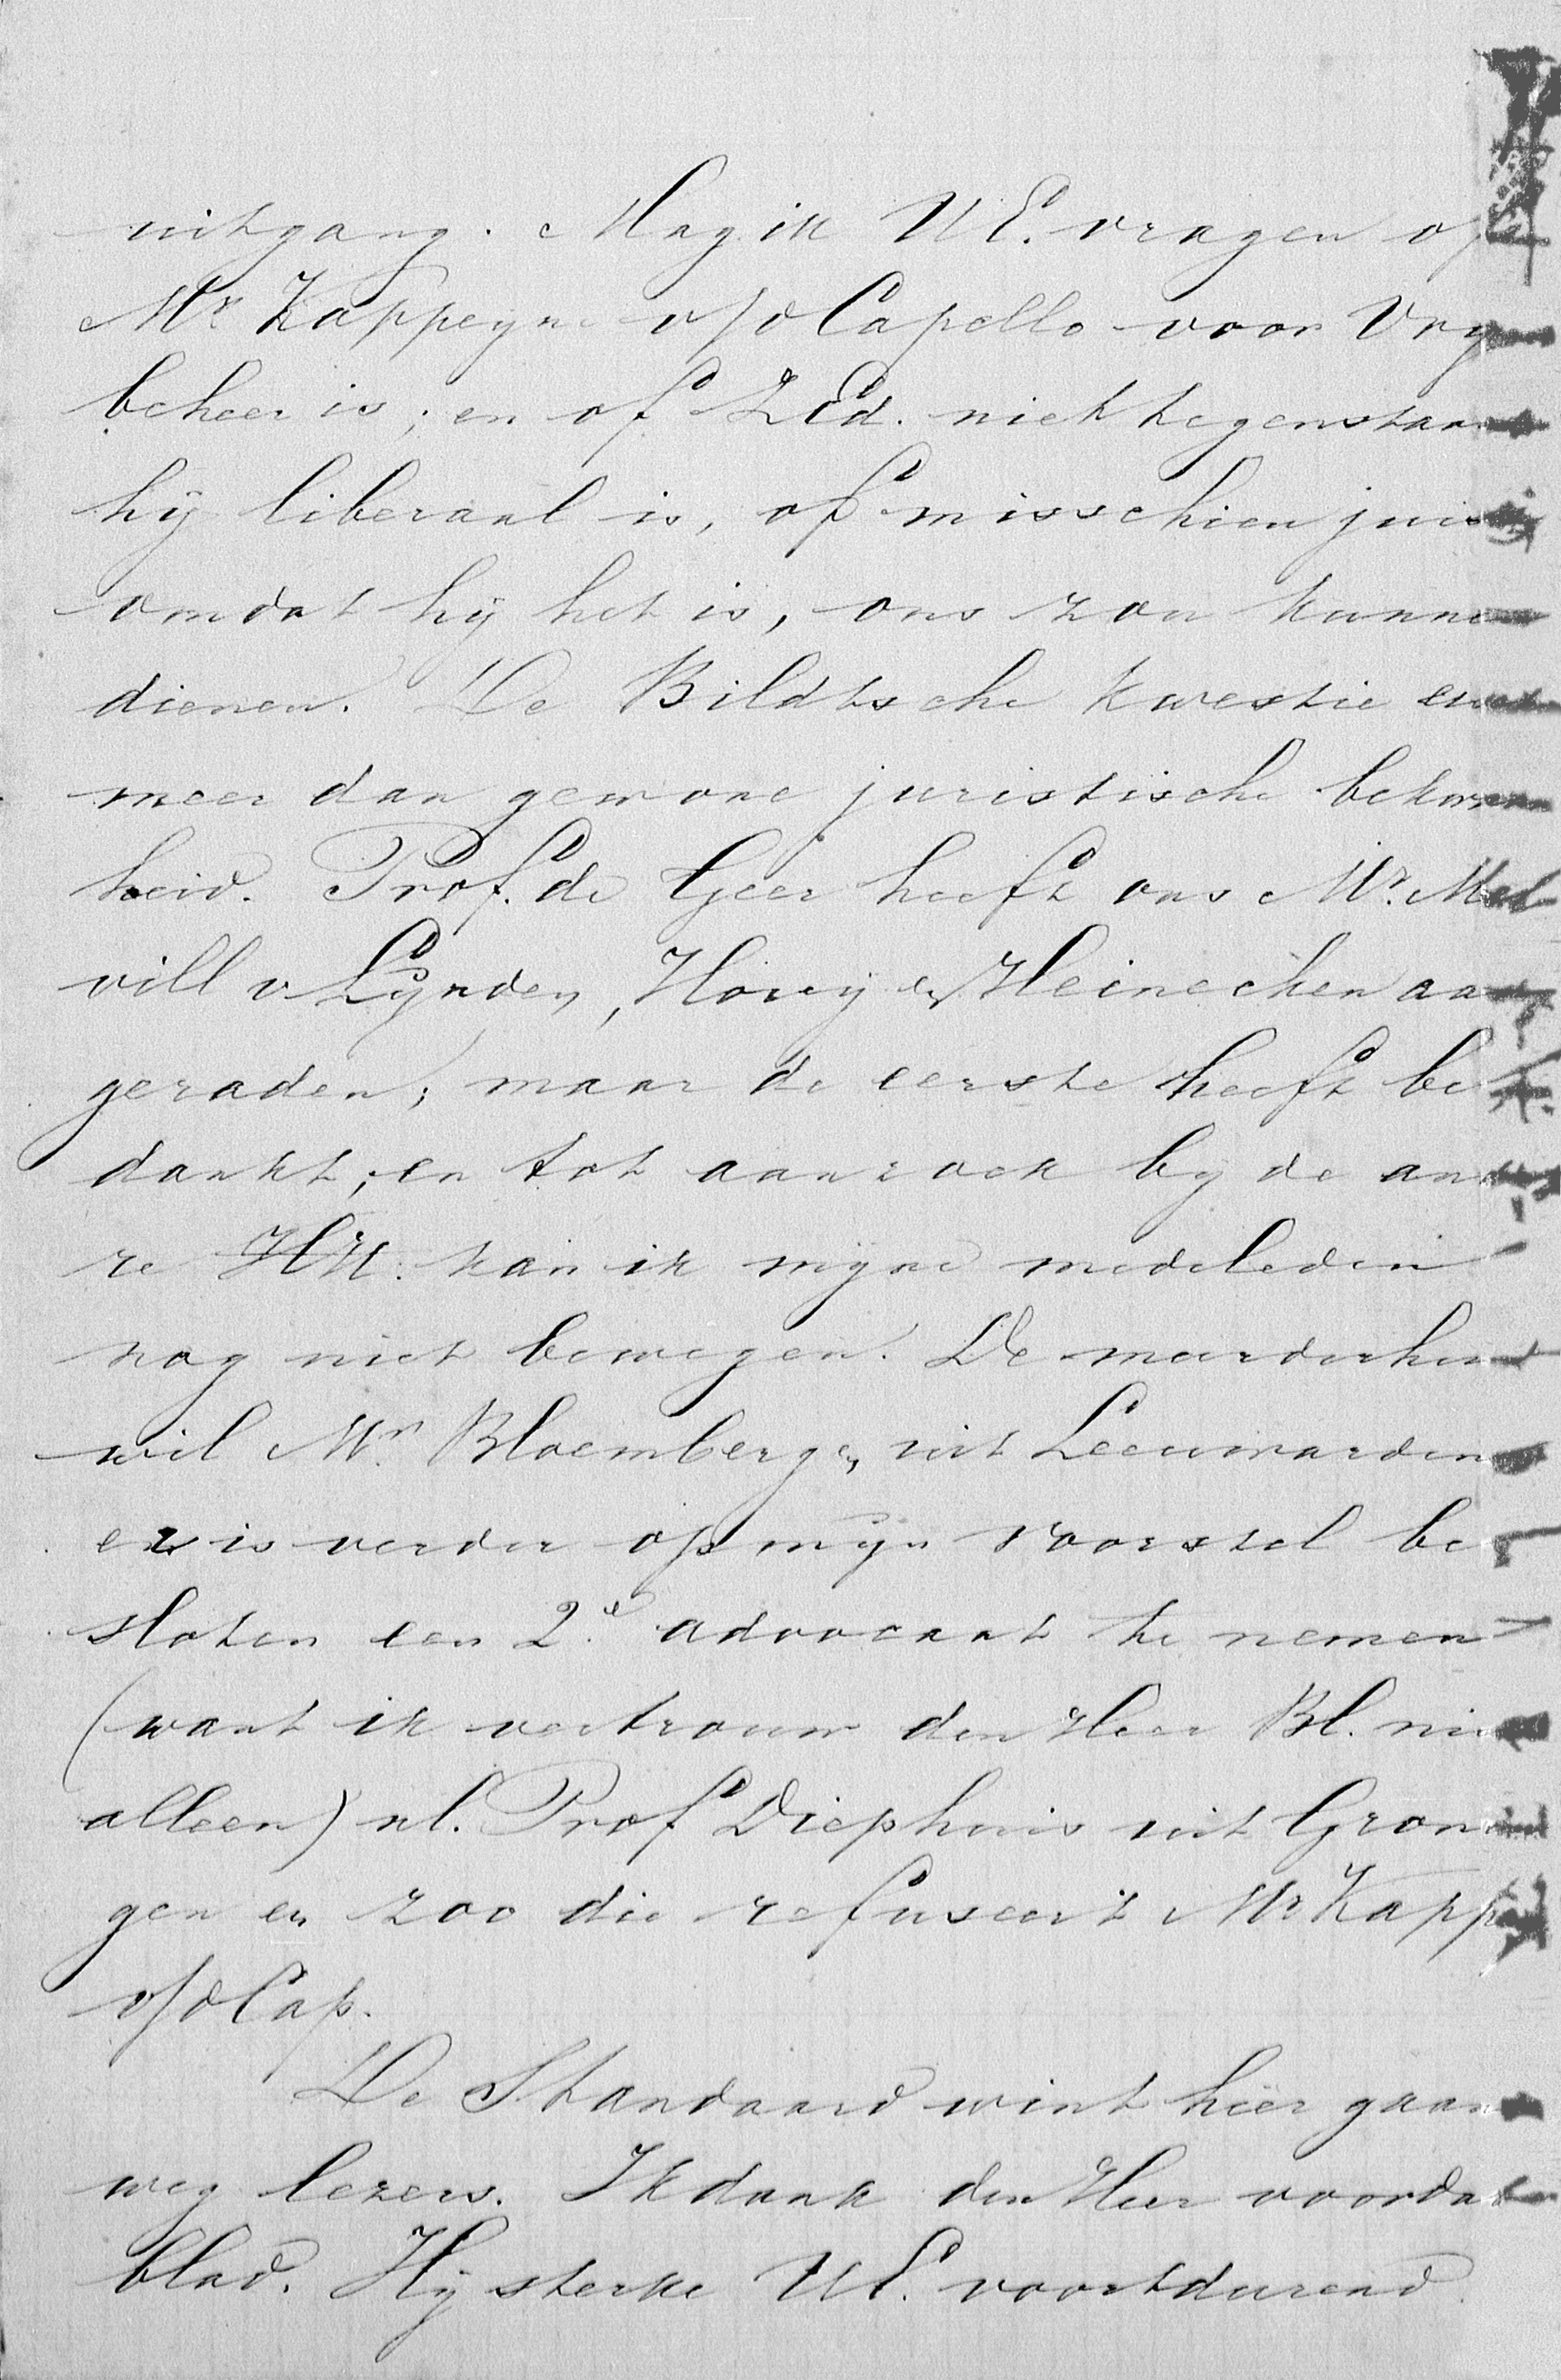 uitgang. Mag ik UE. vragen of
Mr Kappeyne v/d Capello voor Vry
beheer is; en of ZEd. niettegenstaan
hij liberaal is, of misschien juis
omdat hij het is, ons zou kunne
dienen. De Bildtsche kwestie
meer dan gewone juristische bekwaam
heid. Prof. de Geer heeft ons Mr. Mel
vill v Lynden, Hovij en Heinecken aan
geraden; maar de eerste heeft be
dankt; en tot aanzoek bij de and
re HH. kan ik mijne medeleden
nog niet bewegen. De meerderheid
wil Mr. Bloembergen uit Leeuwarden
er is verder op mijn voorstel be
sloten een 2e advocaat te nemen
(want ik vertrouw den Heer Bl. niet
alleen) nl. Prof Diephuis uit Gronin
gen en zoo die refuseert Mr Kapp
v/d Cap.
De Standaard wint hier gaan
weg lezers. Ik dank den Heer voor dat
blad. Hij sterke UE. voortdurend.